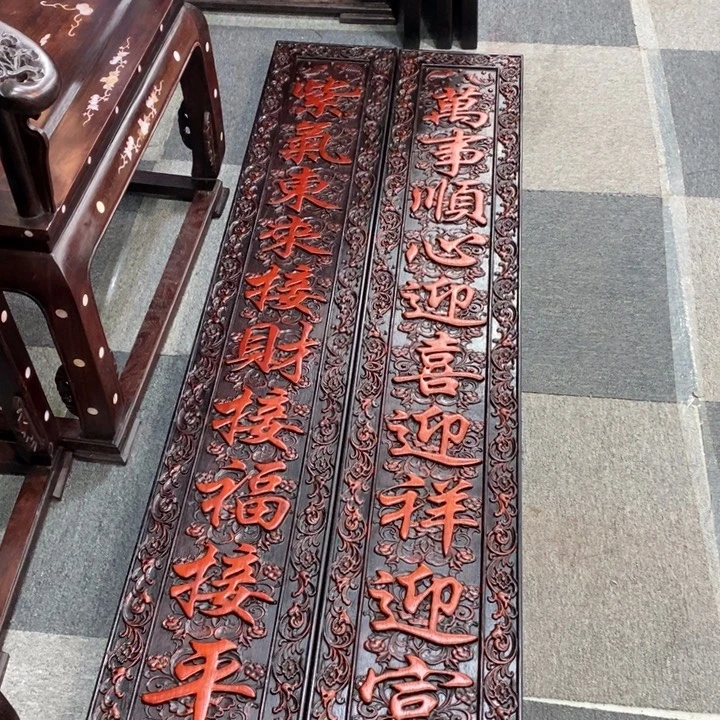 萬事順心迎喜迎祥迎
紫氣東来接財接福接平